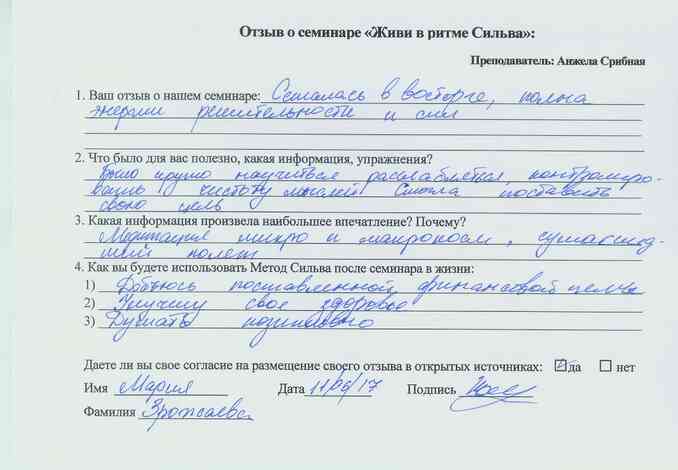 Отзыв о семинаре «Живи в ритме Сильва»:
Преподаватель: Анжела Срибная
1. Ваш отзыв о нашем семинаре: Осталась в восторге, полна
энергии решительности и сил
2. Что было для вас полезно, какая информация, упражнения?
Было круто научиться расслабляться, контролиро-
вать чистоту мыслей Смогла поставить
свою цель
3. Какая информация произвела наибольшее впечатление? Почему?
Медитация микро и макрокосм, сумасшед-
ший полет
4. Как вы будете использовать Метод Сильва после семинара в жизни:
1) Добьюсь поставленной финансовой цели
2) Улучшу свое здоровье
3) Думать позитивно
Даете ли вы свое согласие на размещение своего отзыва в открытых источниках: да нет
Имя Мария Дата 11/06/17 Подпись
Фамилия